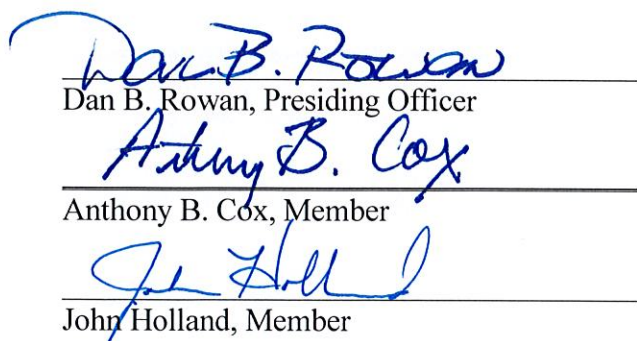 Dan B. Rowan
Dan B. Rowan, Presiding Officer
Anthony B. Cox
Anthony B. Cox, Member
John Holland
John Holland, Member